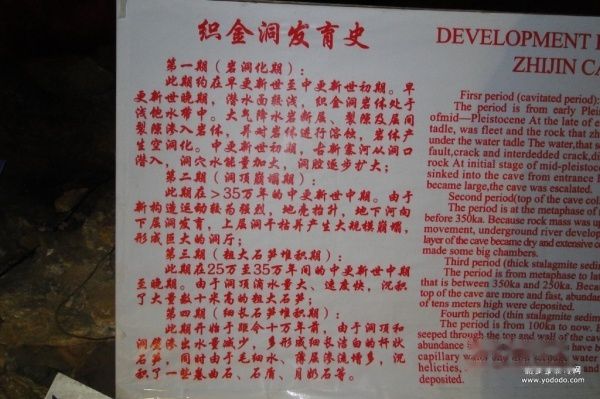 织金洞发育史
第一期（岩洞化期）：
此期约在早更新世至中更新世初期。早
更新世晚期，潜水面较浅，织金洞岩体处于
浅饱水带中。大气降水岩新层、裂隙及层间
裂隙渗入岩体，并对岩体进行溶蚀，岩体产
生空洞化。中更新世初期，古新寨河从洞口
潜入，洞穴水能量加大，洞腔逐步扩大；
第二期（洞顶崩塌期）：
此期在>35万年的中更新世中期。由于
新构造运动较为强烈，地壳抬升，地下河向
下层洞发育，上层洞干枯并产生大规模崩塌，
形成巨大的洞厅；
第三期（粗大石笋堆积期）：
此期在25万至35万年间的中更新世中期
至晚期。由于洞顶滴水量大、速度快，沉积
了大量数十米高的粗大石笋；
第四期（细长石笋堆积期）：
此期开始于距今十万年前，由于洞顶和
洞壁渗出水量减少，多形成细长洁白的杆状
石笋，同时由于毛细水、薄层渗流增多，沉
积了一些卷曲石、石盾、月奶石等。
DEVELOPMENT
ZHIJIN CA
Firsr period (cavitated period):
The period is from early Pleis
ofmid—Pleistocene At the late of e
tadle, was fleet and the rock that zh
the under water table The water,that s
fault,crack and interdedded crack,di
rock At initial stage of mid-pleistoce
sinked into the cave from entrance I
became large,the cave was escalated.
Second period(top of the cave col
The period is at the metaphase of t
before 350ka. Because rock mass was up
movement, underground river developme
layer of the cave became dry and extensive c
made some big chambers.
Third period (thick stalagmite sedim
The period is from metaphase to late
that is between 350ka and 250ka. Beca
top of the cave are more and fast, abundanc
of tens meters high were deposited.
Fourth period (thin stalagmite sedim
The period is from 100ka to now. B
seeped through the top and wall of the cav
abundance
have b
capillary wat
water
helicties,
deposited.
www.yododo.com